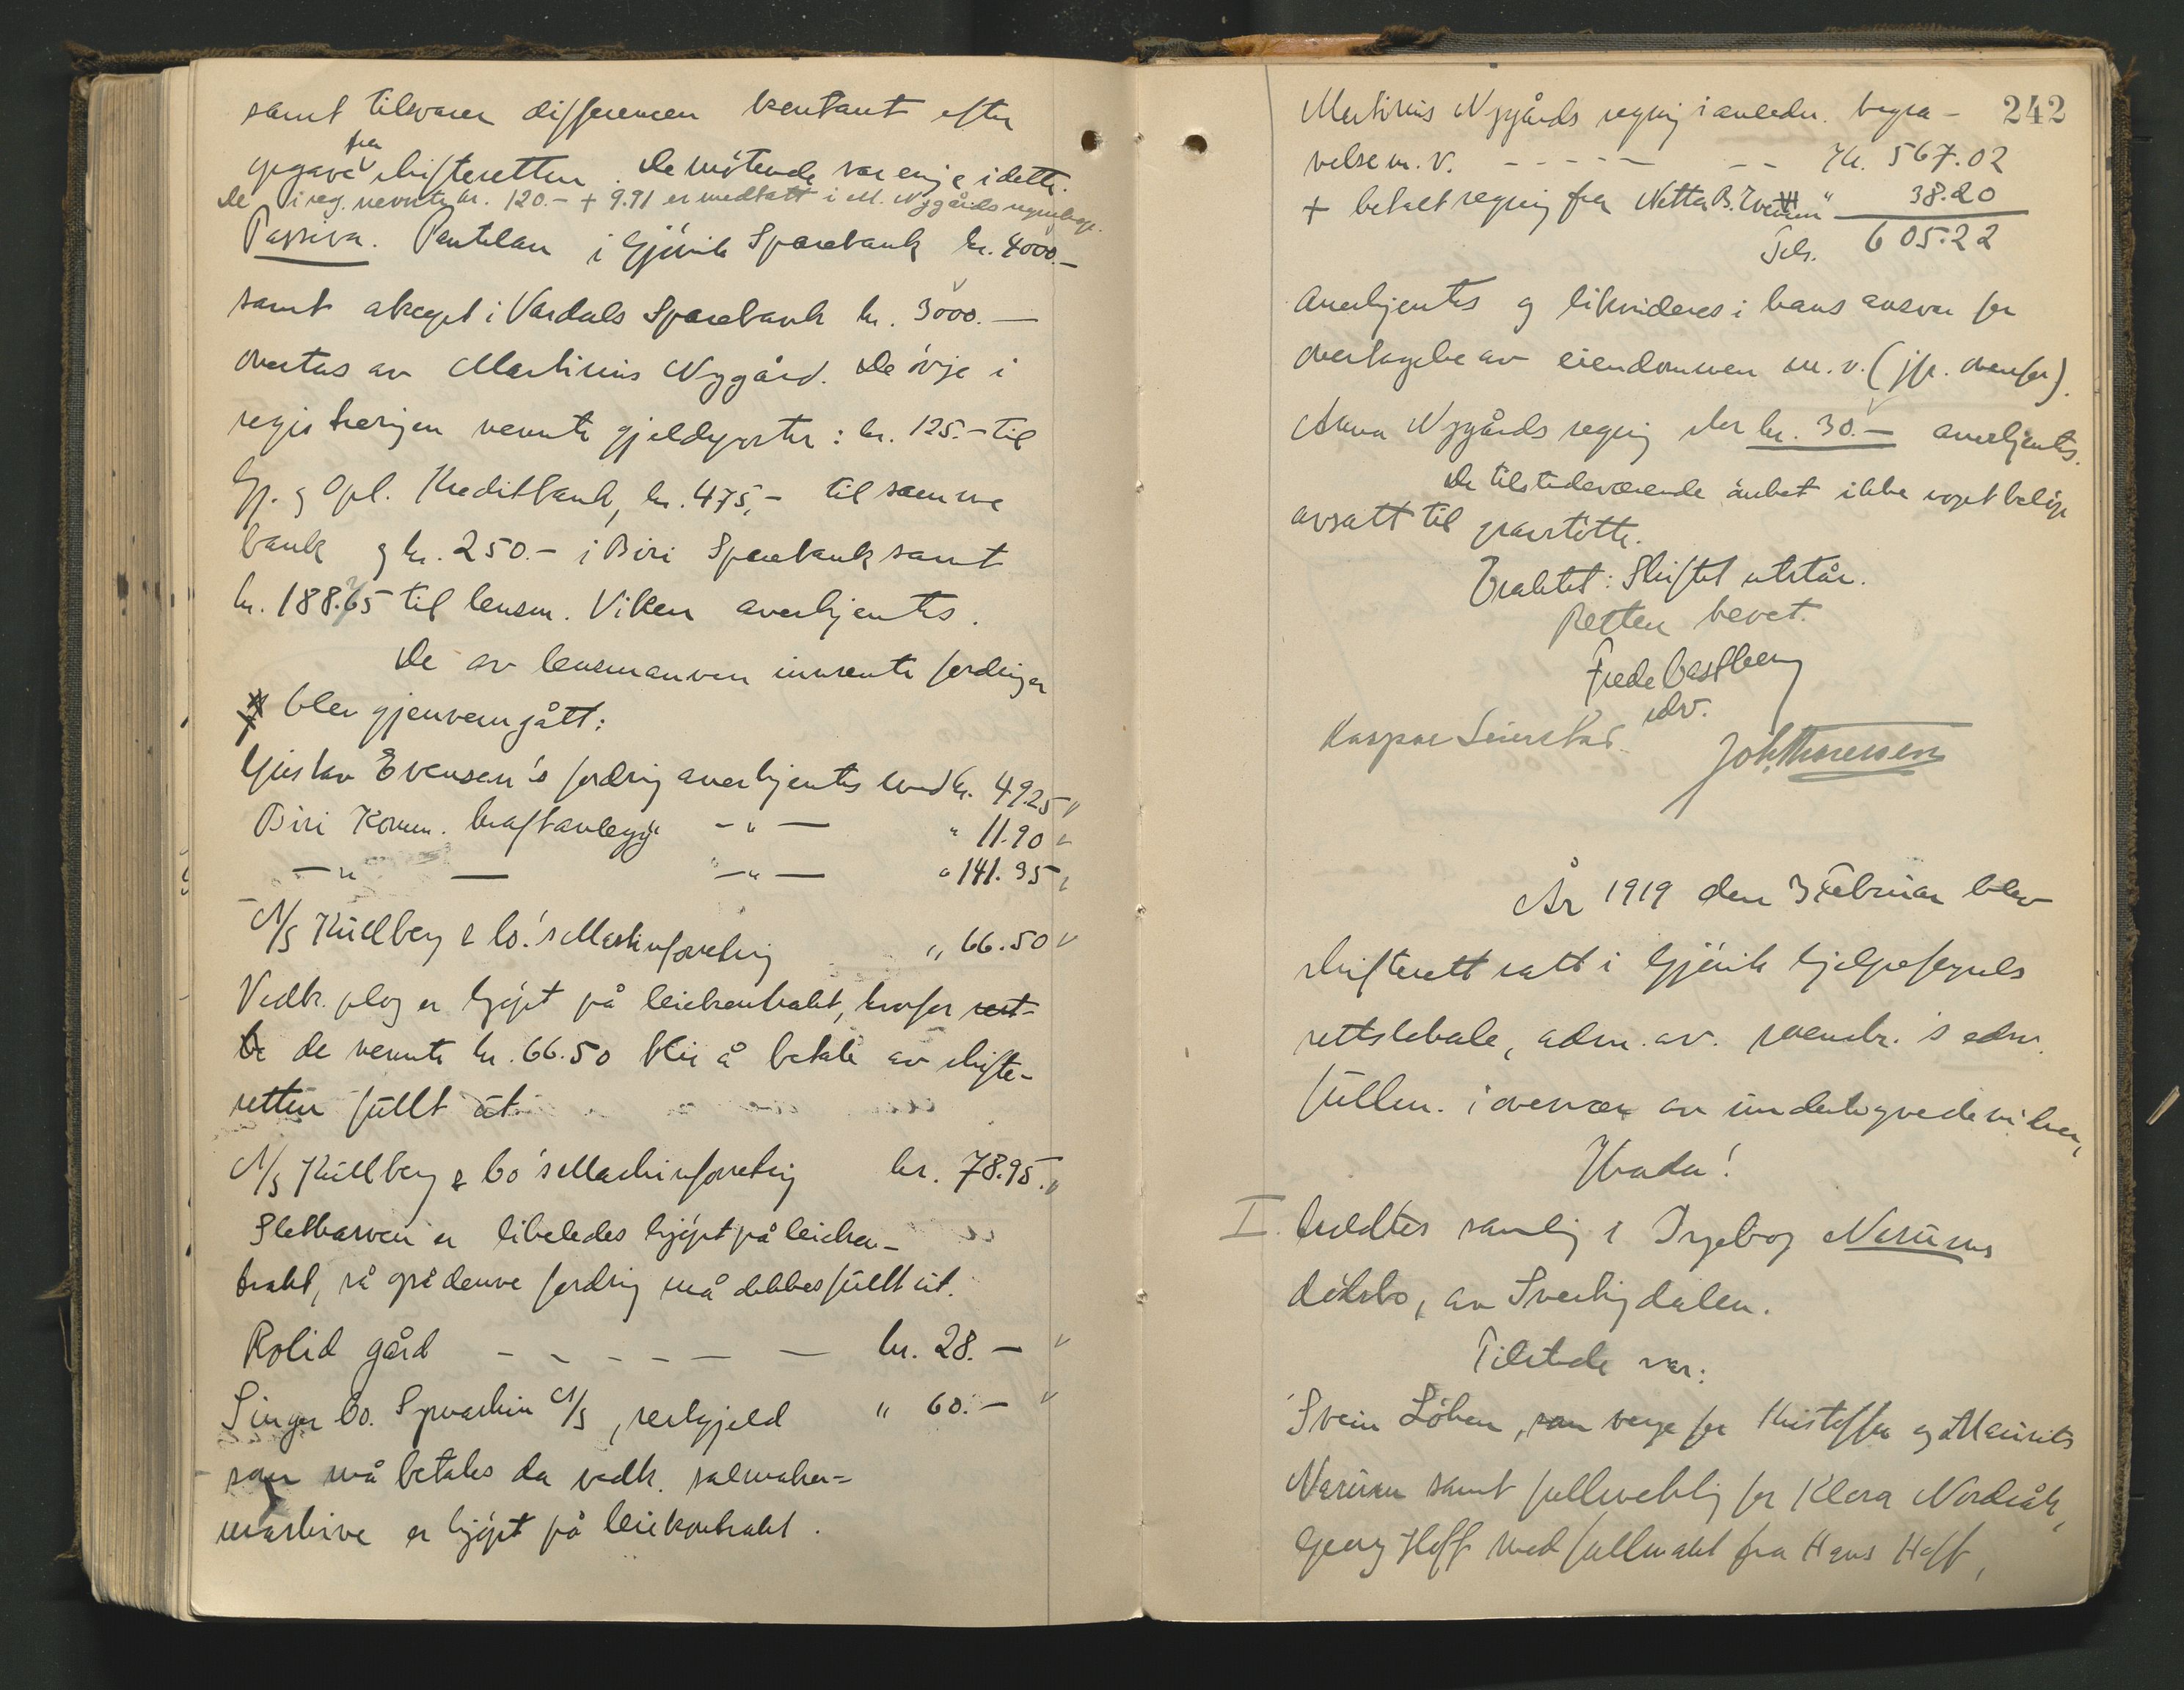 samt tilsvarer differencen kontant efter
opgave fra skifteretten. De møtende var enige i dette.
De i reg. nevnte kr. 120.- + 9.91 er medtatt i M. Nygårds regning.
Passiva. Pantelån i Gjøvik Sparebank kr. 4000.-
samt aksept i Vardals Sparebank kr. 3000.-
overtas av Martinius Nygård. De øvrige i
registreringen nevnte gjeldsposter: kr. 125.- til
Gj. og Opl. Kreditbank, kr. 475,- til samme
bank og kr. 250.- i Biri Sparebank samt
kr. 188.65 til lensm. Viken anerkjentes.
De av lensmannen innsendte fordringer
blev gjennemgått:
Gustav Evensen's fordring anerkjentes med kr. 49.25
Biri Komm. kraftanlegg -"- " 11.90
-"- -"- " 141.95
A/S Küllberg & Co.'s Maskinforretning " 66.50
Vedk. plog er kjøpt på leiekontrakt, hvorfor
de nevnte kr. 66.50 blir å betale av skifte-
retten fullt ut.
A/S Küllberg & Co's Maskinforretning kr. 78.95.
Sletharven er likeledes kjøpt på leiekon-
trakt, så også denne fordring må dekkes fullt ut.
Rolid gård - - - - - - kr. 28.-
Singer Co. Symaskin A/S, restgjeld " 60.-
som må betales da vedk. salmaker-
maskine er kjøpt på leiekontrakt.
242
Martinius Nygårds regning i anledn. begra-
velse m. v. - - - - - - - Kr. 567.02
+ betalt regning fra Netta B. " 38.20
Tils. 605.22
anerkjentes og likvideres i hans ansvar for
overtagelse av eiendommen m. v. (jfr. ovenfor).
Anna Nygårds regning stor kr. 30.- anerkjentes.
De tilstedeværende ønsket ikke noget beløp
avsatt til gravstøtte.
Eraktet: Skiftet utstår.
Retten hevet.
Frede Castberg
edv.
Kaspar Seierstad Joh. Thoresen
År 1919 den 3 Februar blev
skifterett satt i Gjøvik hjelpefengsels
rettslokale, adm. av sorenskr.'s edsv.
fullm. i overvær av undertegnede vidner,
Hvorda!
I. holdtes samling i Ingeborg Nerums
dødsbo, av Sverligdalen.
Tilstede var:
Svein Løken, som verge for Kristoffer og Maurits
Nerum samt fullmektig for Klara Nordråk,
Georg Hoff med fullmakt fra Hans Hoff,